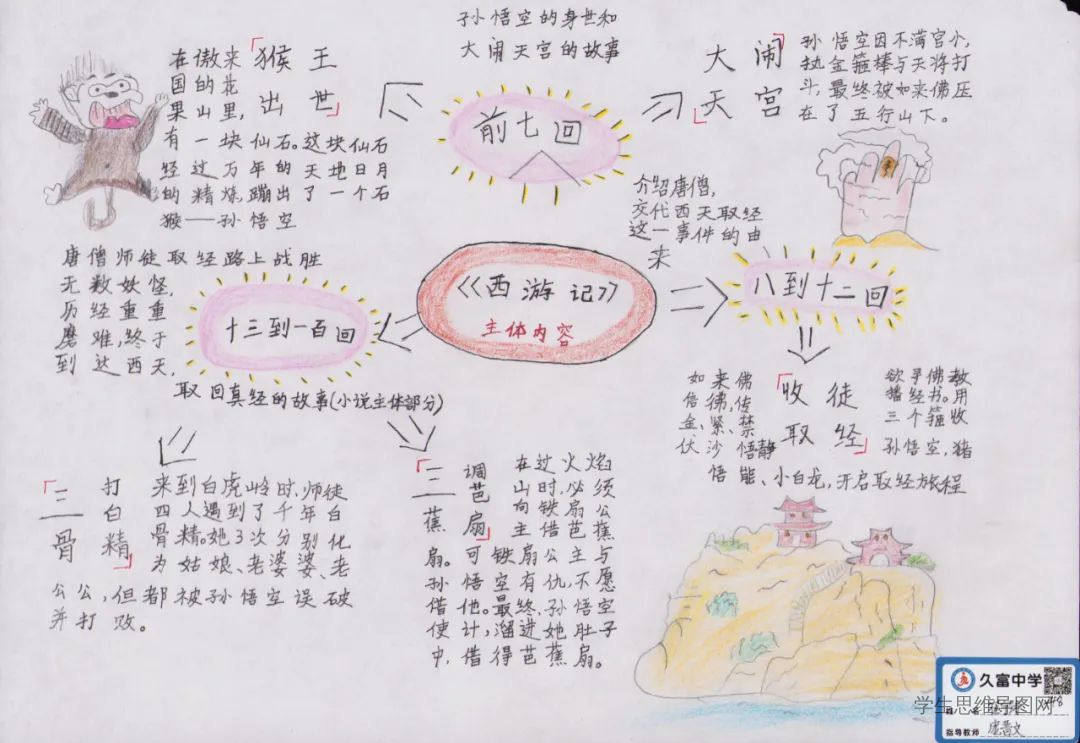 孙悟空的身世和
大闹天宫的故事
前七回
「猴王
出世」
在傲来
国的花
果山里,
有一块仙石。这块仙石
经过万年的天地日月
的精炼,蹦出了一个石
猴——孙悟空
大闹
天宫
孙悟空因不满官小,
执金箍棒与天将打
斗,最终被如来佛压
在了五行山下。
《西游记》
主体内容
介绍唐僧,
交代西天取经
这一事件的由
来
八到十二回
「收徒
取经」
如来佛
悟
金、紧、禁
伏沙悟静
欲寻佛教
播经书。用
三个箍收
孙悟空,猪
悟能、小白龙,开启取经旅程
十三到一百回
唐僧师徒取经路上战胜
无数妖怪,
历经重重
磨难,终于
到达西天,
取回真经的故事(小说主体部分)
「三打
白
骨精」
来到白虎岭时,师徒
四人遇到了千年白
骨精。她3次分别化
为姑娘、老婆婆、老
公公,但都被孙悟空误破
并打败。
「三调
芭
蕉扇」
在过火焰
山时,必须
向铁扇公
主借芭蕉
扇。可铁扇公主与
孙悟空有仇,不愿
借他。最终,孙悟空
使计,溜进她肚子
中,借得芭蕉扇。
久富中学
学生思维导图网
指导教师